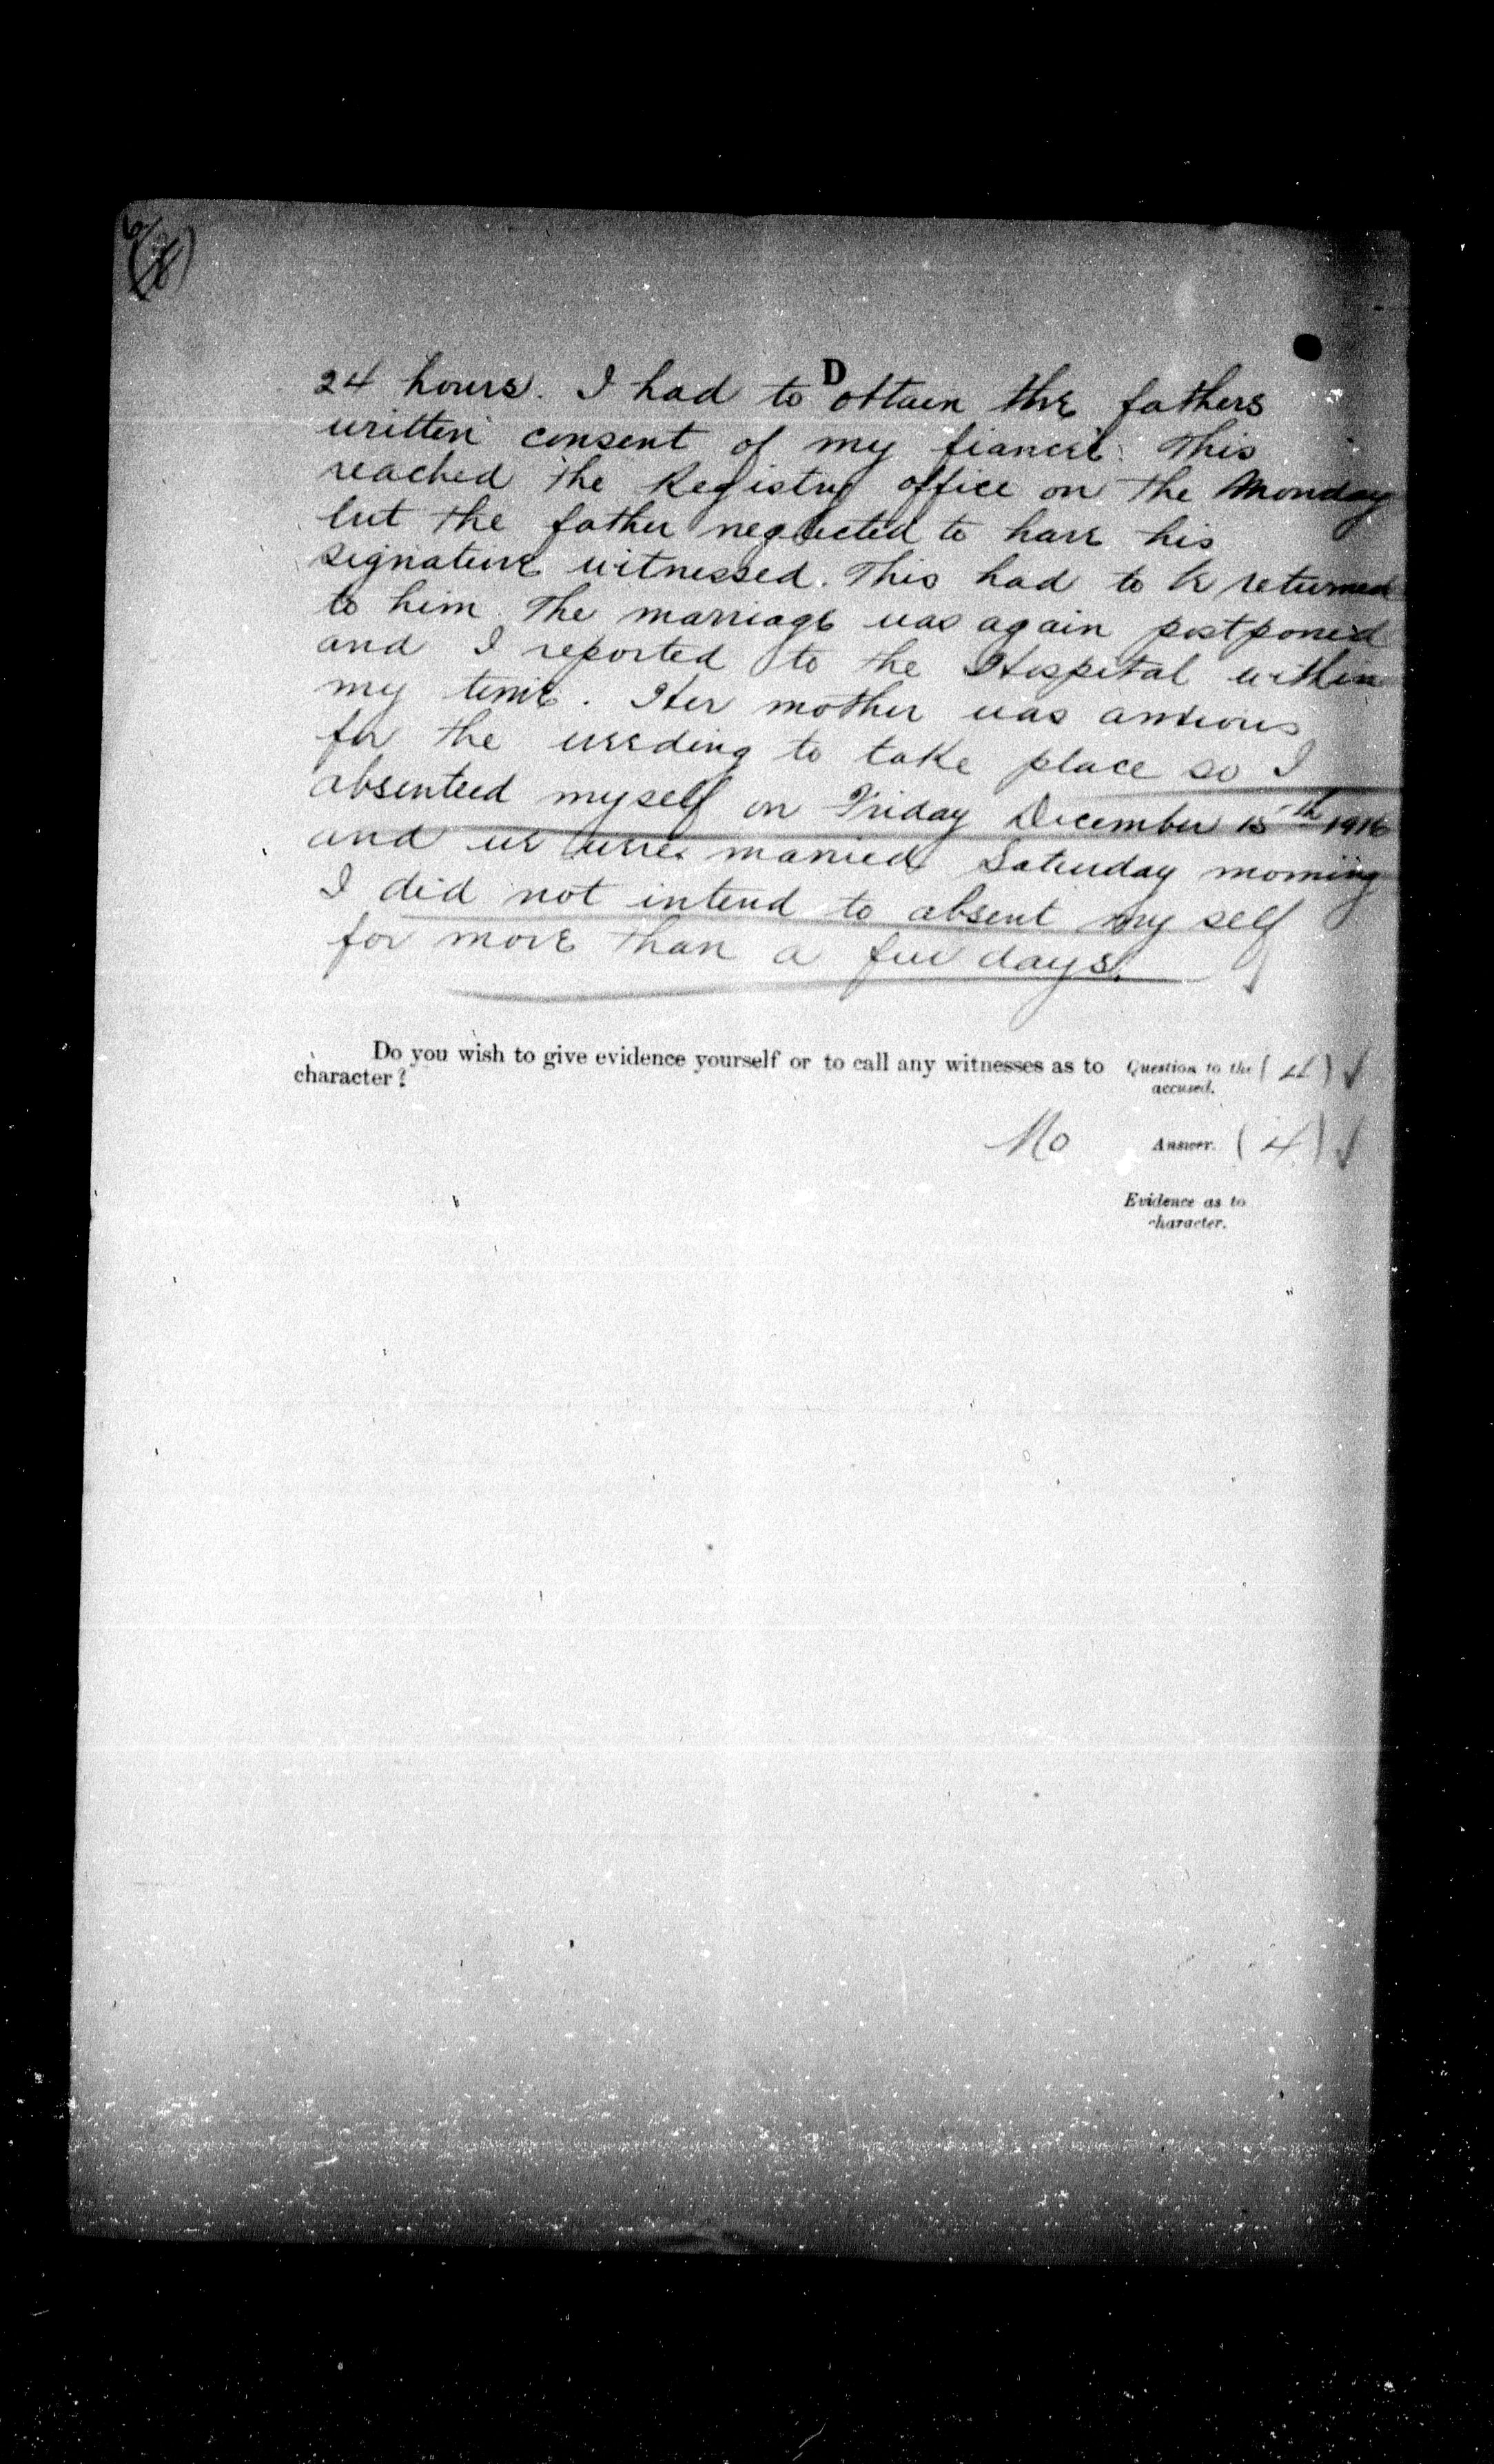 D
24 hours. I had to obtain the fathers
written consent of my fianceé. This
reached the Registry office on the Monday
but the father neglected to have his
signature witnessed. This had to be returned
to him. The marriage was again postponed
and I reported to the Hospital within
my time. Her mother was anxious
for the wedding to take place so I
absenteed myself on Friday December 15th 1916
and we were married Saturday morning
I did not intend to absent my self
for more than a few days.
Do you wish to give evidence yourself or to call any witnesses as to
character?
Question to the (4)
accused.
No Answer. (4)
Evidence as to
character.